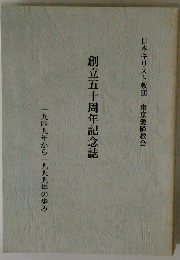 日本キリスト教団 東京愛隣教会
創立五十周年記念誌
一九四九年から一九九九年の歩み